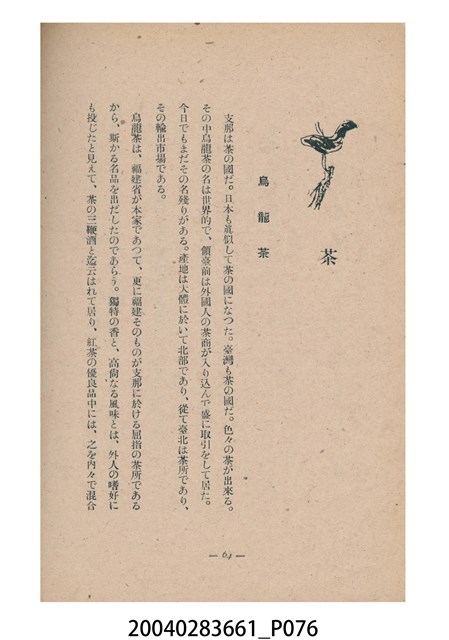 茶
烏龍茶
支那は茶の國だ。日本も眞似して茶の國になつた。臺灣も茶の國だ。色々の茶が出來る。
その中烏龍茶の名は世界的で、領臺前は外國人の茶商が入り込んで盛に取引をして居た。
今日でもまだその名殘りがある。產地は大體に於いて北部であり、從て臺北は茶所であり、
その輸出市場である。
烏龍茶は、福建省が本家であつて、更に福建そのものが支那に於ける屈指の茶所である
から、斯かる名品を出だしたのであらう。獨特の香と、高尙なる風味とは、外人の嗜好に
も投じたと見えて、茶の三鞭酒と迄云はれて居り、紅茶の優良品中には、之を內々で混合
— 64 —
20040283661_P076